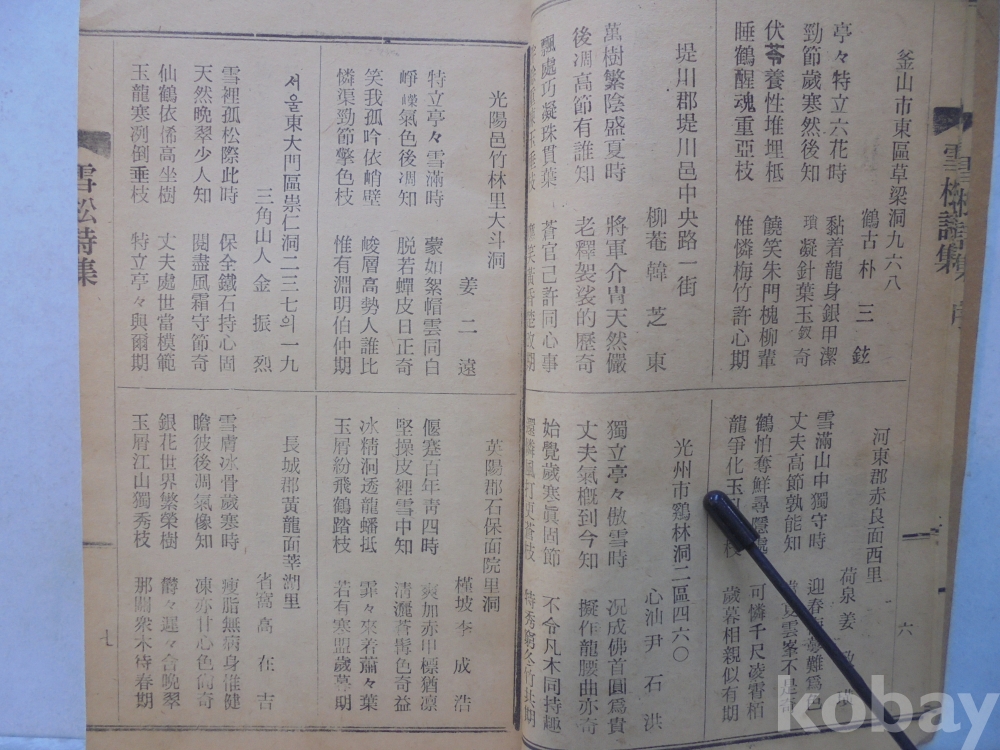 雪松詩集
釜山市東區草梁洞九六八
鶴古 朴三鉉
亭々特立六花時 黏着龍身銀甲潔
勁節歲寒然後知 瑣凝針葉玉釵奇
伏苓養性堆埋柢 饒笑朱門槐柳輩
睡鶴醒魂重亞枝 惟憐梅竹許心期
堤川郡堤川邑中央路一街
柳菴 韓芝東
萬樹繁陰盛夏時 將軍介冑天然儼
後凋高節有誰知 老釋袈裟的歷奇
飄處巧凝珠貫葉 蒼官已許同心事
河東郡赤良面西里
荷泉 姜
雪滿山中獨守時
丈夫高節孰能知
鶴怕奪鮮尋隱 可憐千尺凌霄栢
龍爭化玉 歲暮相親似有期
光州市鷄林洞二區四六〇
心汕 尹石洪
獨立亭々傲雪時 況成佛首圓爲貴
丈夫氣槪到今知 擬作龍腰曲亦奇
始覺歲寒眞固節 不令凡木同持趣
六
光陽邑竹林里大斗洞
姜二遠
特立亭々雪滿時 蒙如絮帽雲同白
崢嶸氣色後凋知 脫若蟬皮日正奇
笑我孤吟依峭壁 峻層高勢人誰比
憐渠勁節擎色枝 惟有淵明伯仲期
서울東大門區崇仁洞二三七의一九
三角山人 金振烈
雪裡孤松際此時 保全鐵石持心固
天然晩翠少人知 閱盡風霜守節奇
仙鶴依俙高坐樹 丈夫處世當模範
玉龍寒冽倒垂枝 特立亭々與爾期
英陽郡石保面院里洞
槿坡 李成浩
偃蹇百年靑四時 爽加赤甲標猶凛
堅操皮裡雪中知 清灑蒼髥色奇益
冰精洞透龍蟠抵 霏々來若薾々葉
玉屑紛飛鶴踏枝 若有寒盟歲暮期
長城郡黃龍面莘洞里
省窩 高在吉
雪膚冰骨歲寒時 瘦脂無病身惟健
瞻彼後凋氣像知 凍亦甘心色尙奇
銀花世界繁榮樹 欝々遲々含晩翠
玉屑江山獨秀枝 那關衆木待春期
雪松詩集
七
kobay